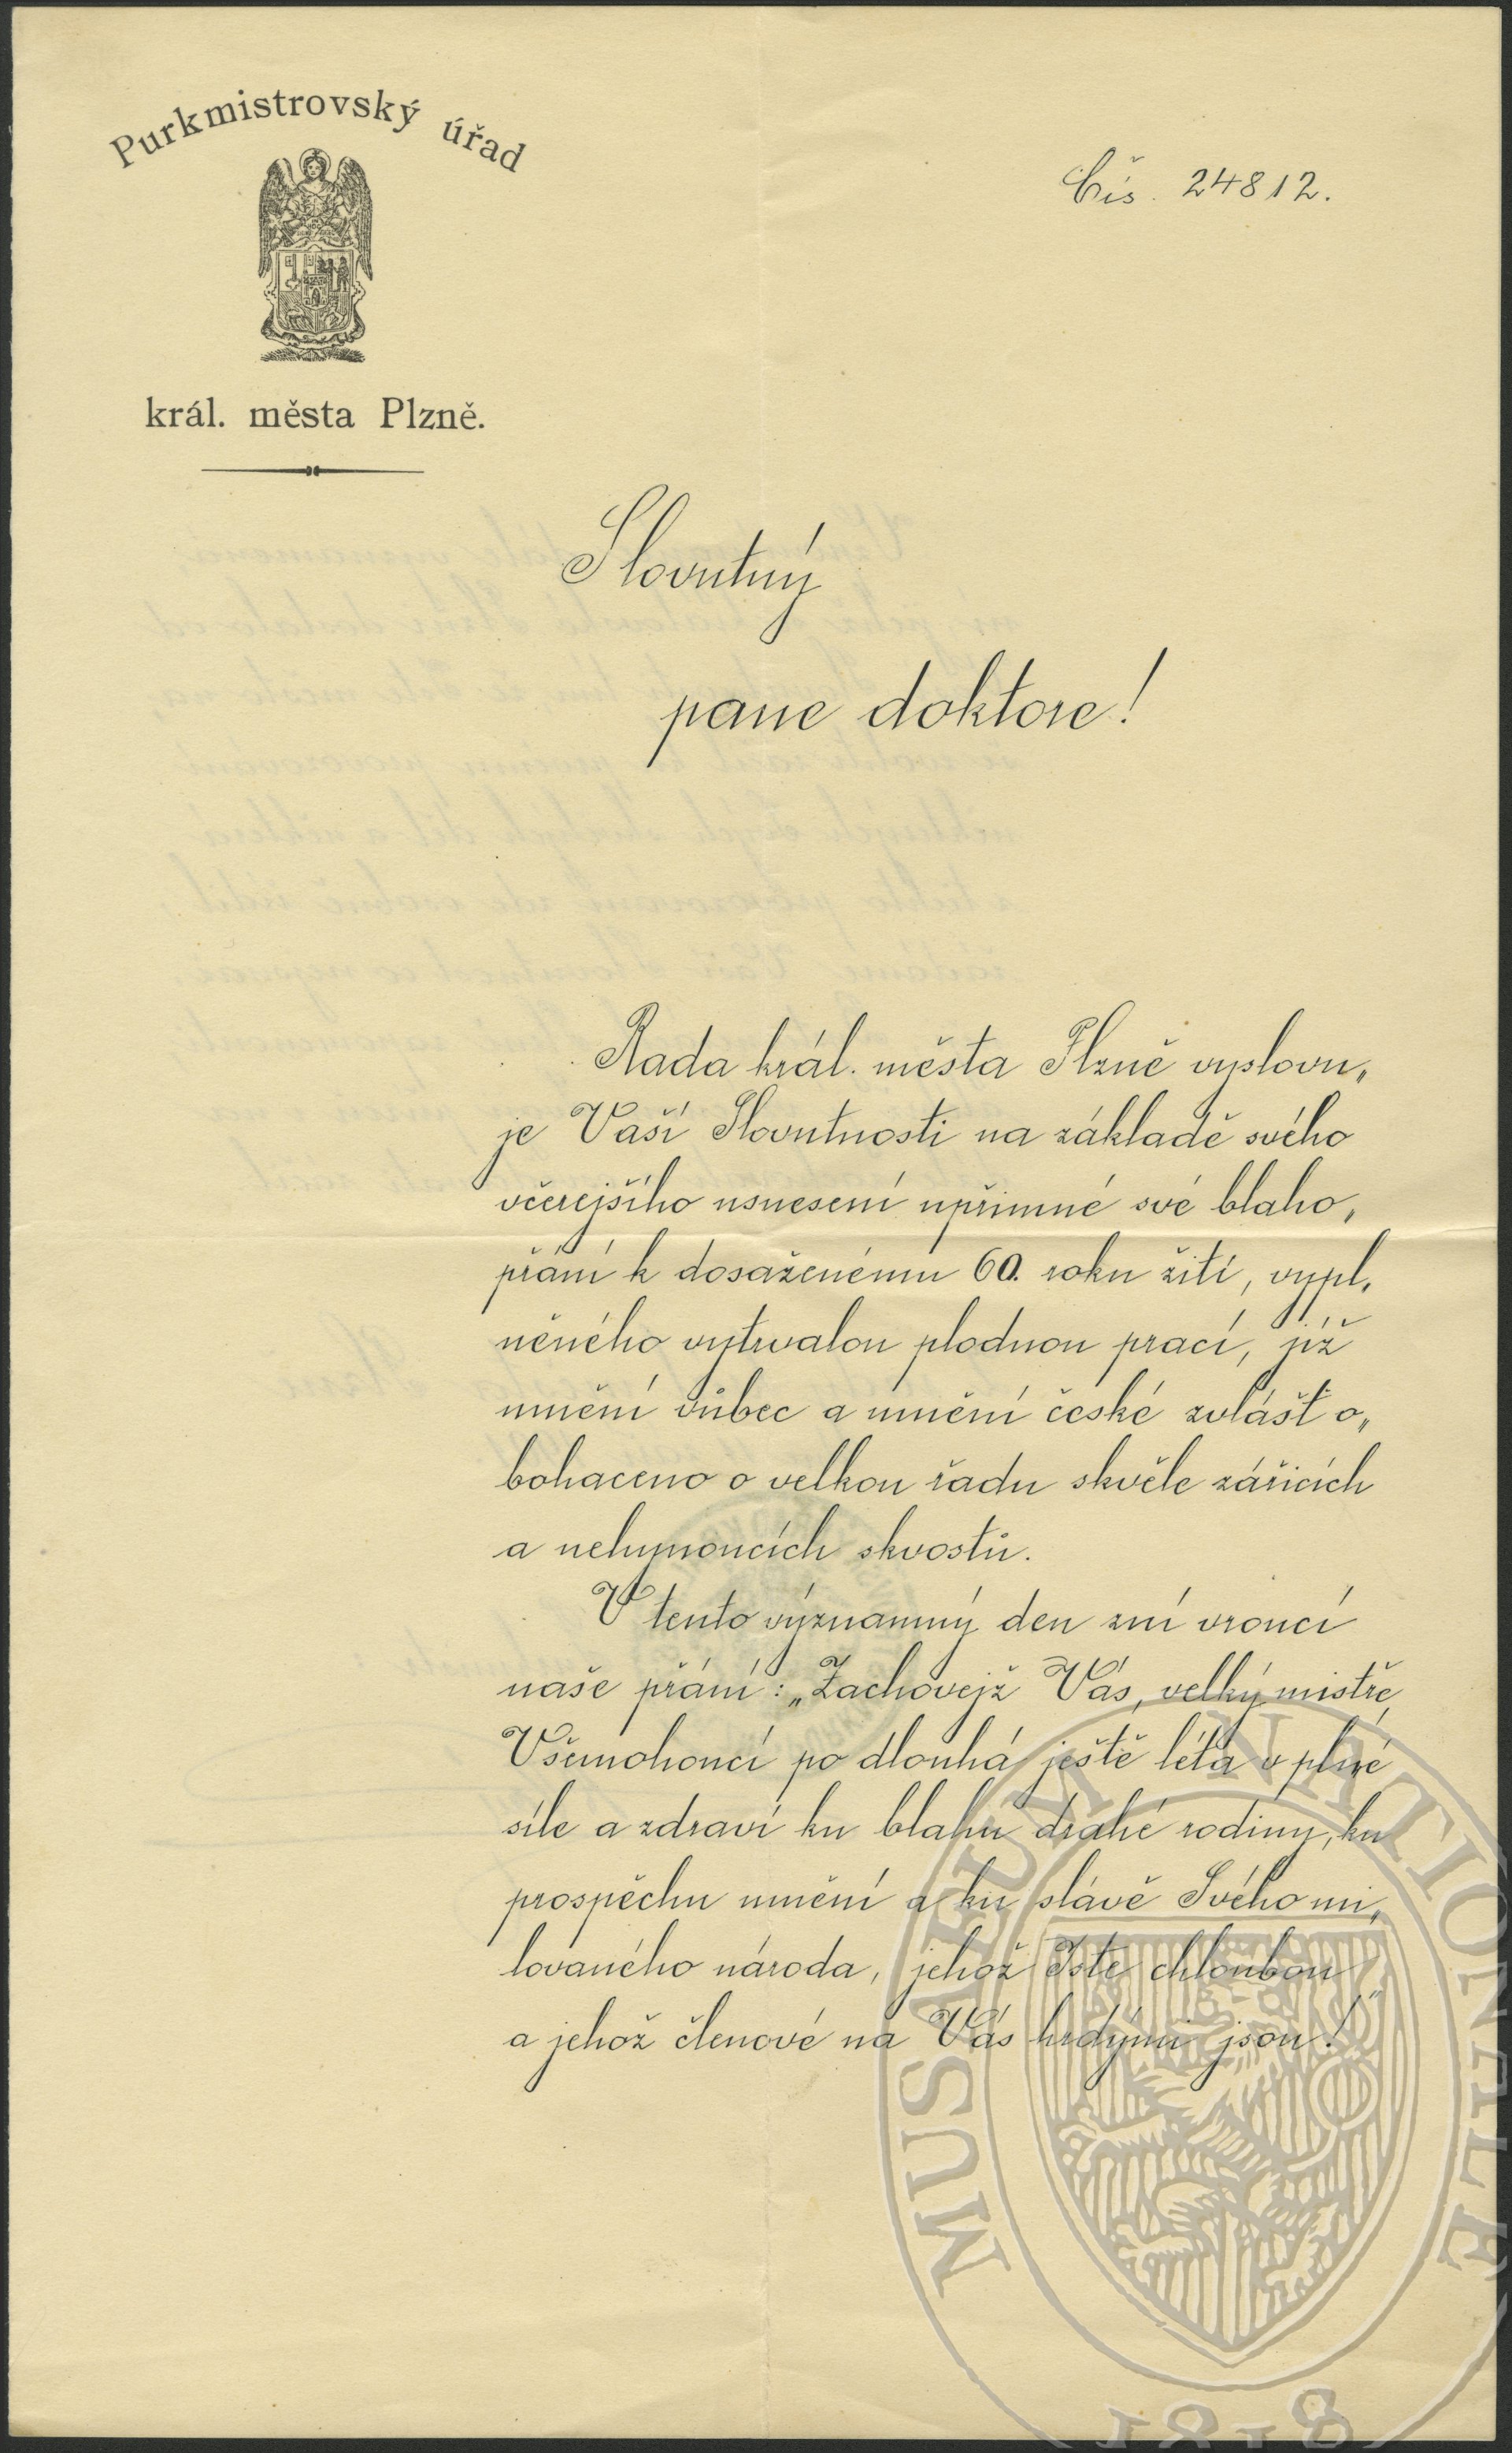 Purkmistrovský úřad
král. města Plzně.
Čís. 24812.
Slovutný
pane doktore!
Rada král. města Plzně vyslovu„
je Vaší Slovutnosti na základě svého
včerejšího usnesení upřímné své blaho„
přání k dosaženému 60. roku žití, vypl„
něného vytrvalou plodnou prací, jíž
umění vůbec a umění české zvlášť o„
bohaceno o velkou řadu skvěle zářících
a nehynoucích skvostů.
V tento významný den zní vroucí
naše přání: „Zachovejž Vás, velký mistře,
Všemohoucí po dlouhá ještě léta v plné
síle a zdraví ku blahu drahé rodiny, ku
prospěchu umění a ku slávě Svého mi„
lovaného národa, jehož Jste chloubou
a jehož členové na Vás hrdými jsou!"
MUSAEUM NATIONALE
1818